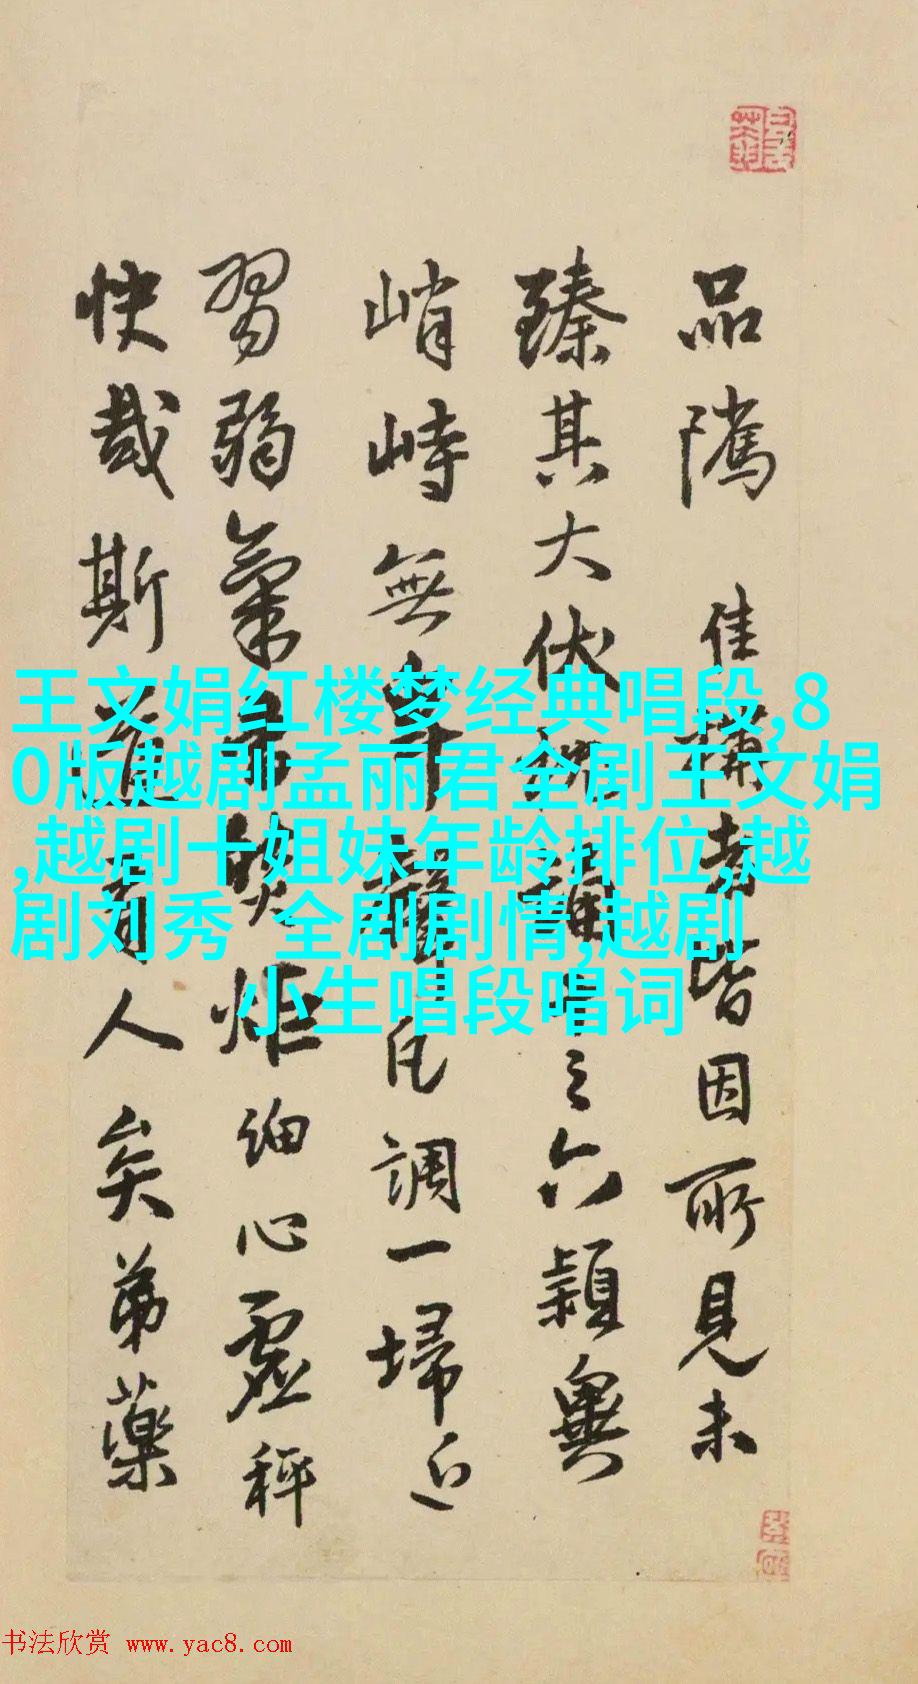 品隲佳構者皆因所見未
臻其大伏之六穎與
峭峙無年聲凡調一埽近
習弱氣焰炬細心虛秤
快哉斯人矣弟藥
王文娟红楼梦经典唱段,8
0版越剧孟丽君全剧王文娟
,越剧十姐妹年龄排位,越
剧刘秀 全剧剧情,越剧
小生唱段唱词
书法欣赏 www.yac8.com